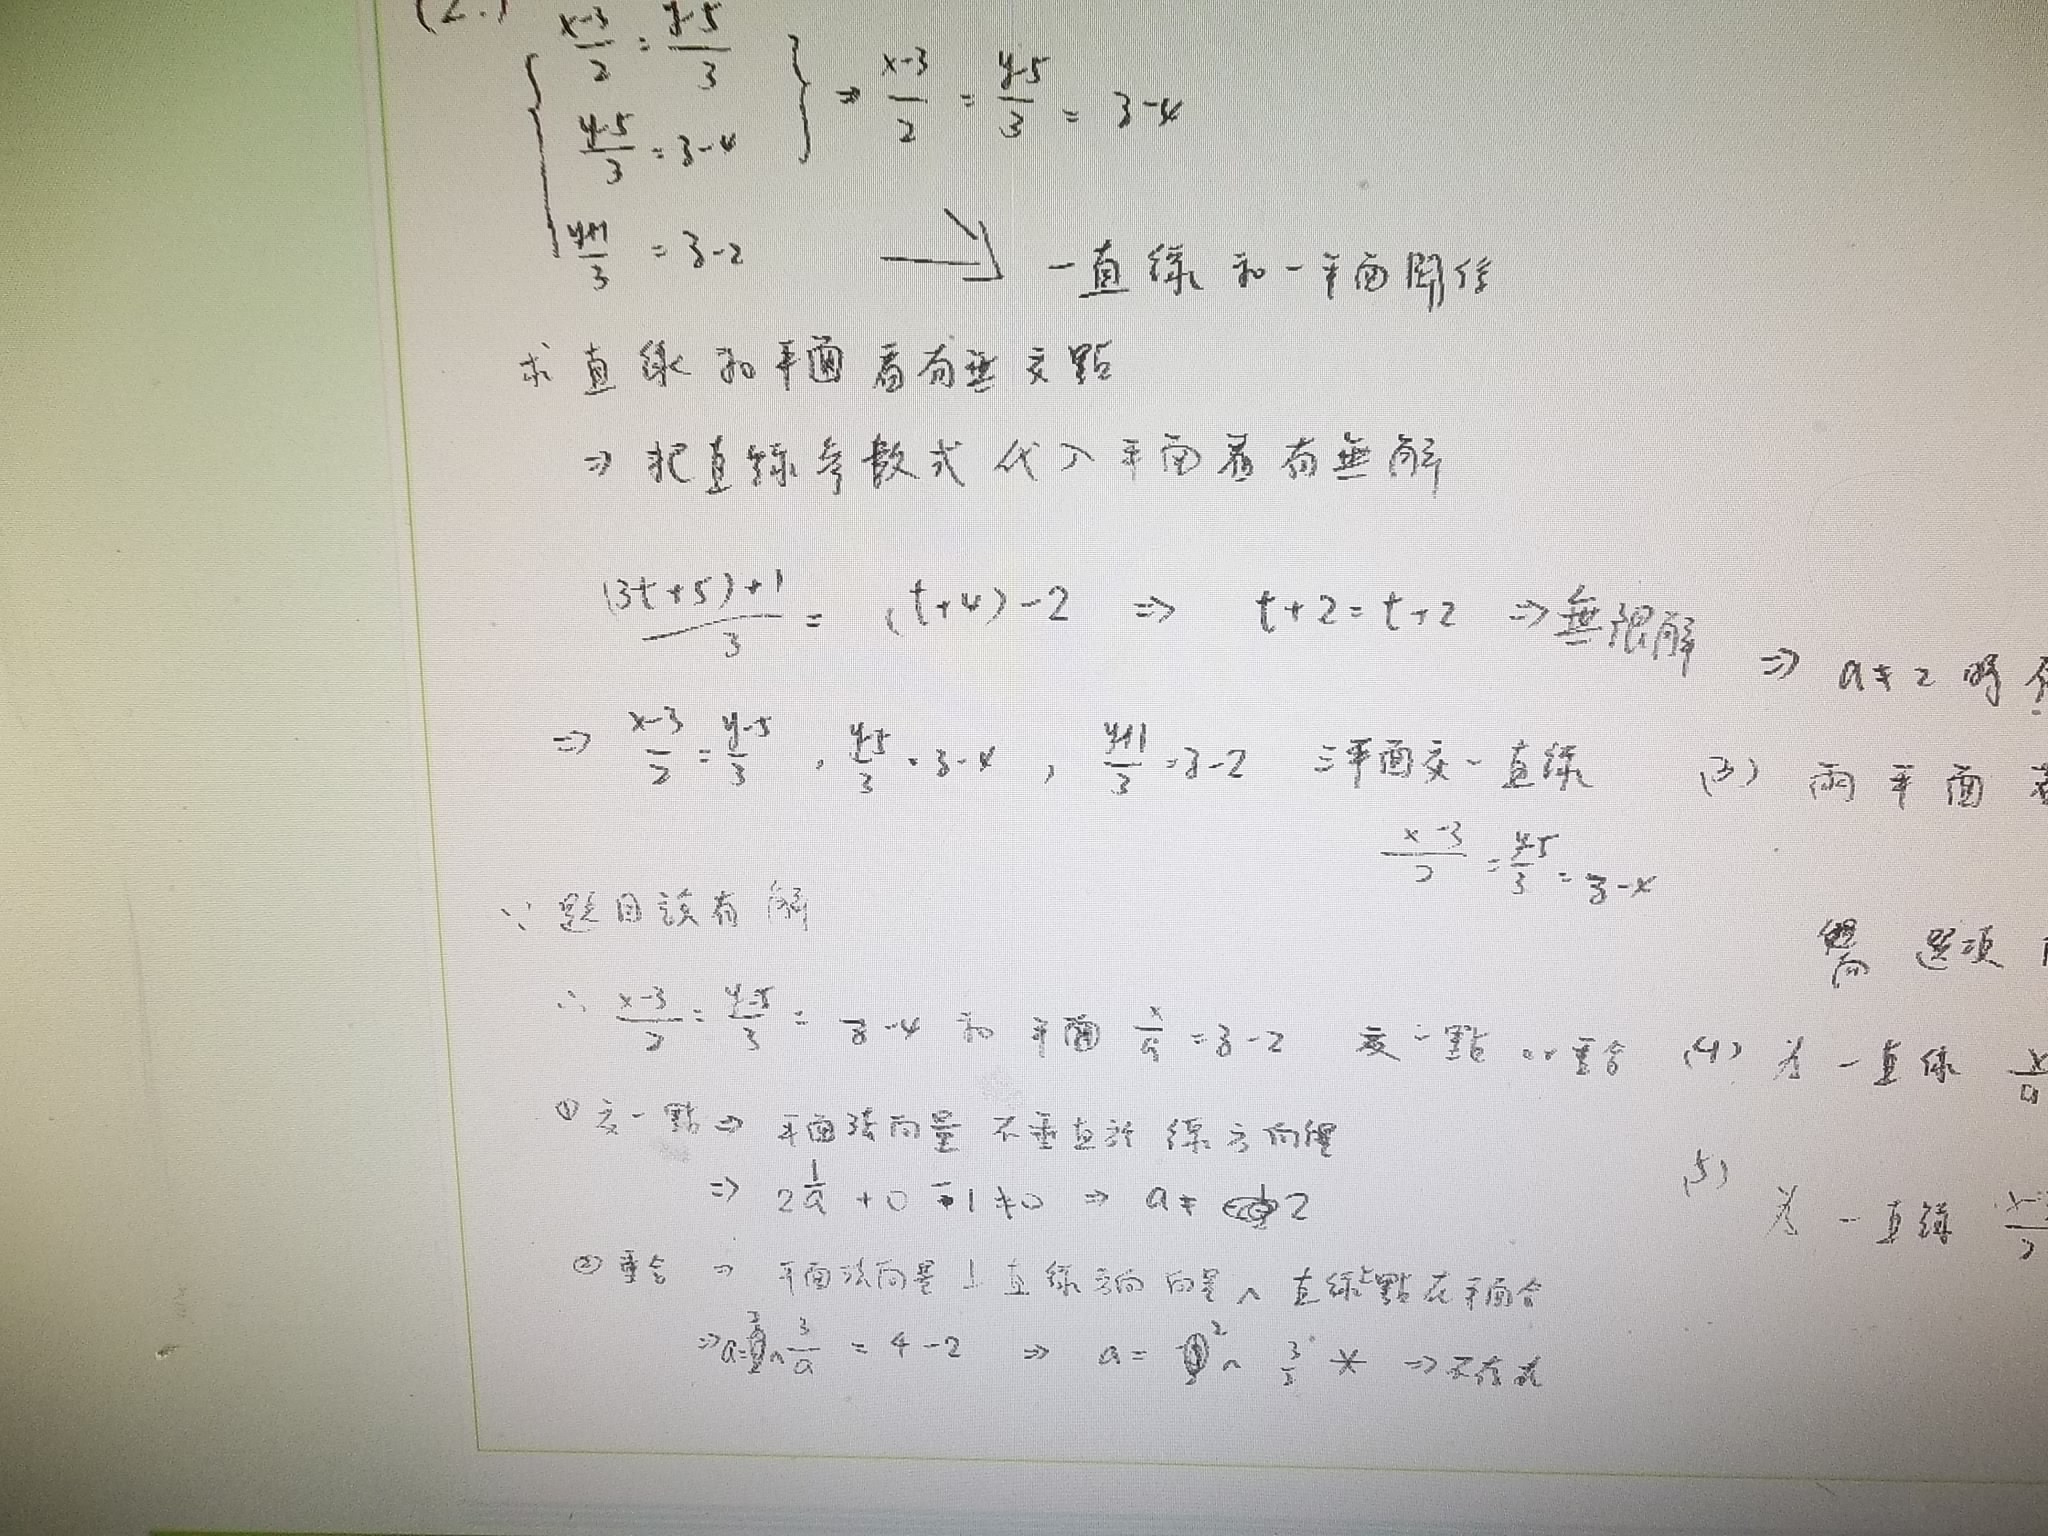 (2.)
{ x-3/2 = y-5/3
y-5/3 = z-4 } ⇒ x-3/2 = y-5/3 = z-4
y+1/3 = z-2 → 一直線和一平面關係
求直線和平面看有無交點
⇒ 把直線參數式代入平面看有無解
(3t+5)+1/3 = (t+4)-2 ⇒ t+2=t+2 ⇒ 無限解
⇒ a≠2 時
⇒ x-3/2 = y-5/3 , y-5/3 = z-4 , y+1/3 = z-2 三平面交一直線
x-3/2 = y-5/3 = z-4
(3) 兩平面
∵ 題目該有解
選項
∴ x-3/2 = y-5/3 = z-4 和平面 x/a = z-2 交一點 or 重合
(4) 為一直線 x/a
① 交一點 ⇒ 平面法向量不垂直於線方向量
⇒ 2 1/a + 0 - 1 ≠ 0 ⇒ a ≠ 2
(5) 為一直線 x-3/2
② 重合 ⇒ 平面法向量 ⊥ 直線方向向量 ∧ 直線上點在平面合
⇒ a=2 ∧ 3/a = 4-2 ⇒ a = 2 ∧ 3/2 * ⇒ 不合